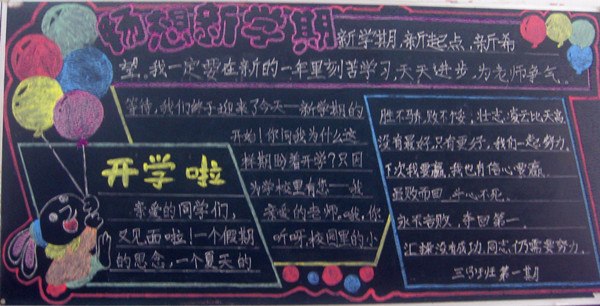 畅想新学期
新学期,新起点,新希
望,我一定要在新的一年里刻苦学习,天天进步,为老师争气。
开学啦
亲爱的同学们,
又见面啦!一个假期
的思念,一个夏天的
等待,我们终于迎来了今天——新学期的
开始!你问我为什么这
样期盼着开学?只因
为学校里有您——我
亲爱的老师。哦,你
听呀,校园里的小
胜不骄,败不馁,壮志凌云比天高
没有最好,只有更好,我们一起努力。
下次我要赢,我也有信心要赢。
虽败而回 斗心不死。
永不言败,夺回第一。
汇报没有成功,同志仍需要努力。
班第一期